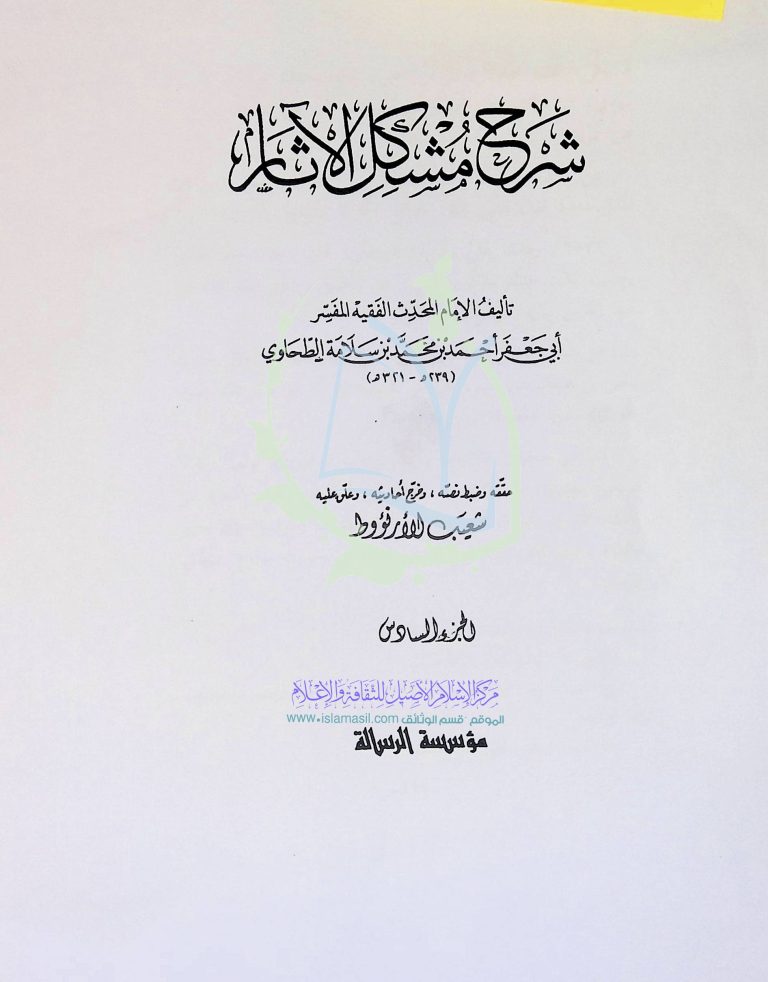 شرح مشكل الآثار
تأليف الإمام المحدّث الفقيه المفسّر
أبي جعفر أحمد بن محمّد بن سلامة الطّحاوي
(٢٣٩هـ - ٣٢١هـ)
حققه وضبط نصه ، وخرّج أحاديثه ، وعلّق عليه
شعيب الأرنؤوط
الجزء السادس
مركز الإسلام الأصيل للثقافة والإعلام
الموقع - قسم الوثائق www.islamasil.com
مؤسسة الرسالة